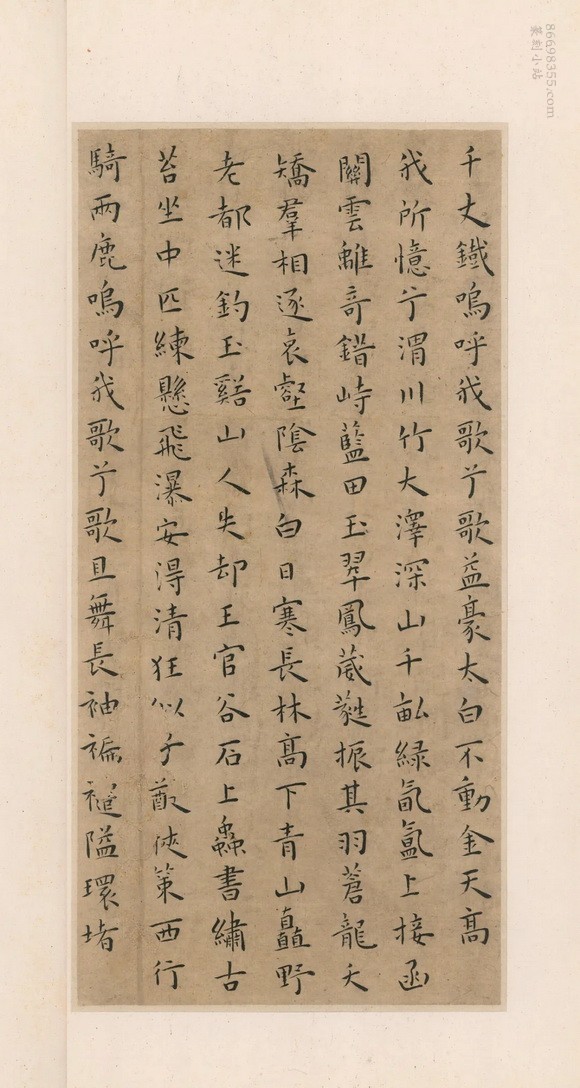 千丈鐵嗚呼我歌兮歌益豪太白不動金天高
我所憶兮渭川竹大澤深山千畝綠氤氳上接函
關雲離奇錯峙藍田玉翠鳳葳蕤振其羽蒼龍夭
矯羣相逐哀壑陰森白日寒長林高下青山矗野
老都迷釣玉谿山人失却王官谷石上蟲書繡古
苔坐中匹練懸飛瀑安得清狂似子猷俠策西行
騎兩鹿嗚呼我歌兮歌且舞長袖褊褼隘環堵
86698355.com
篆刻小站